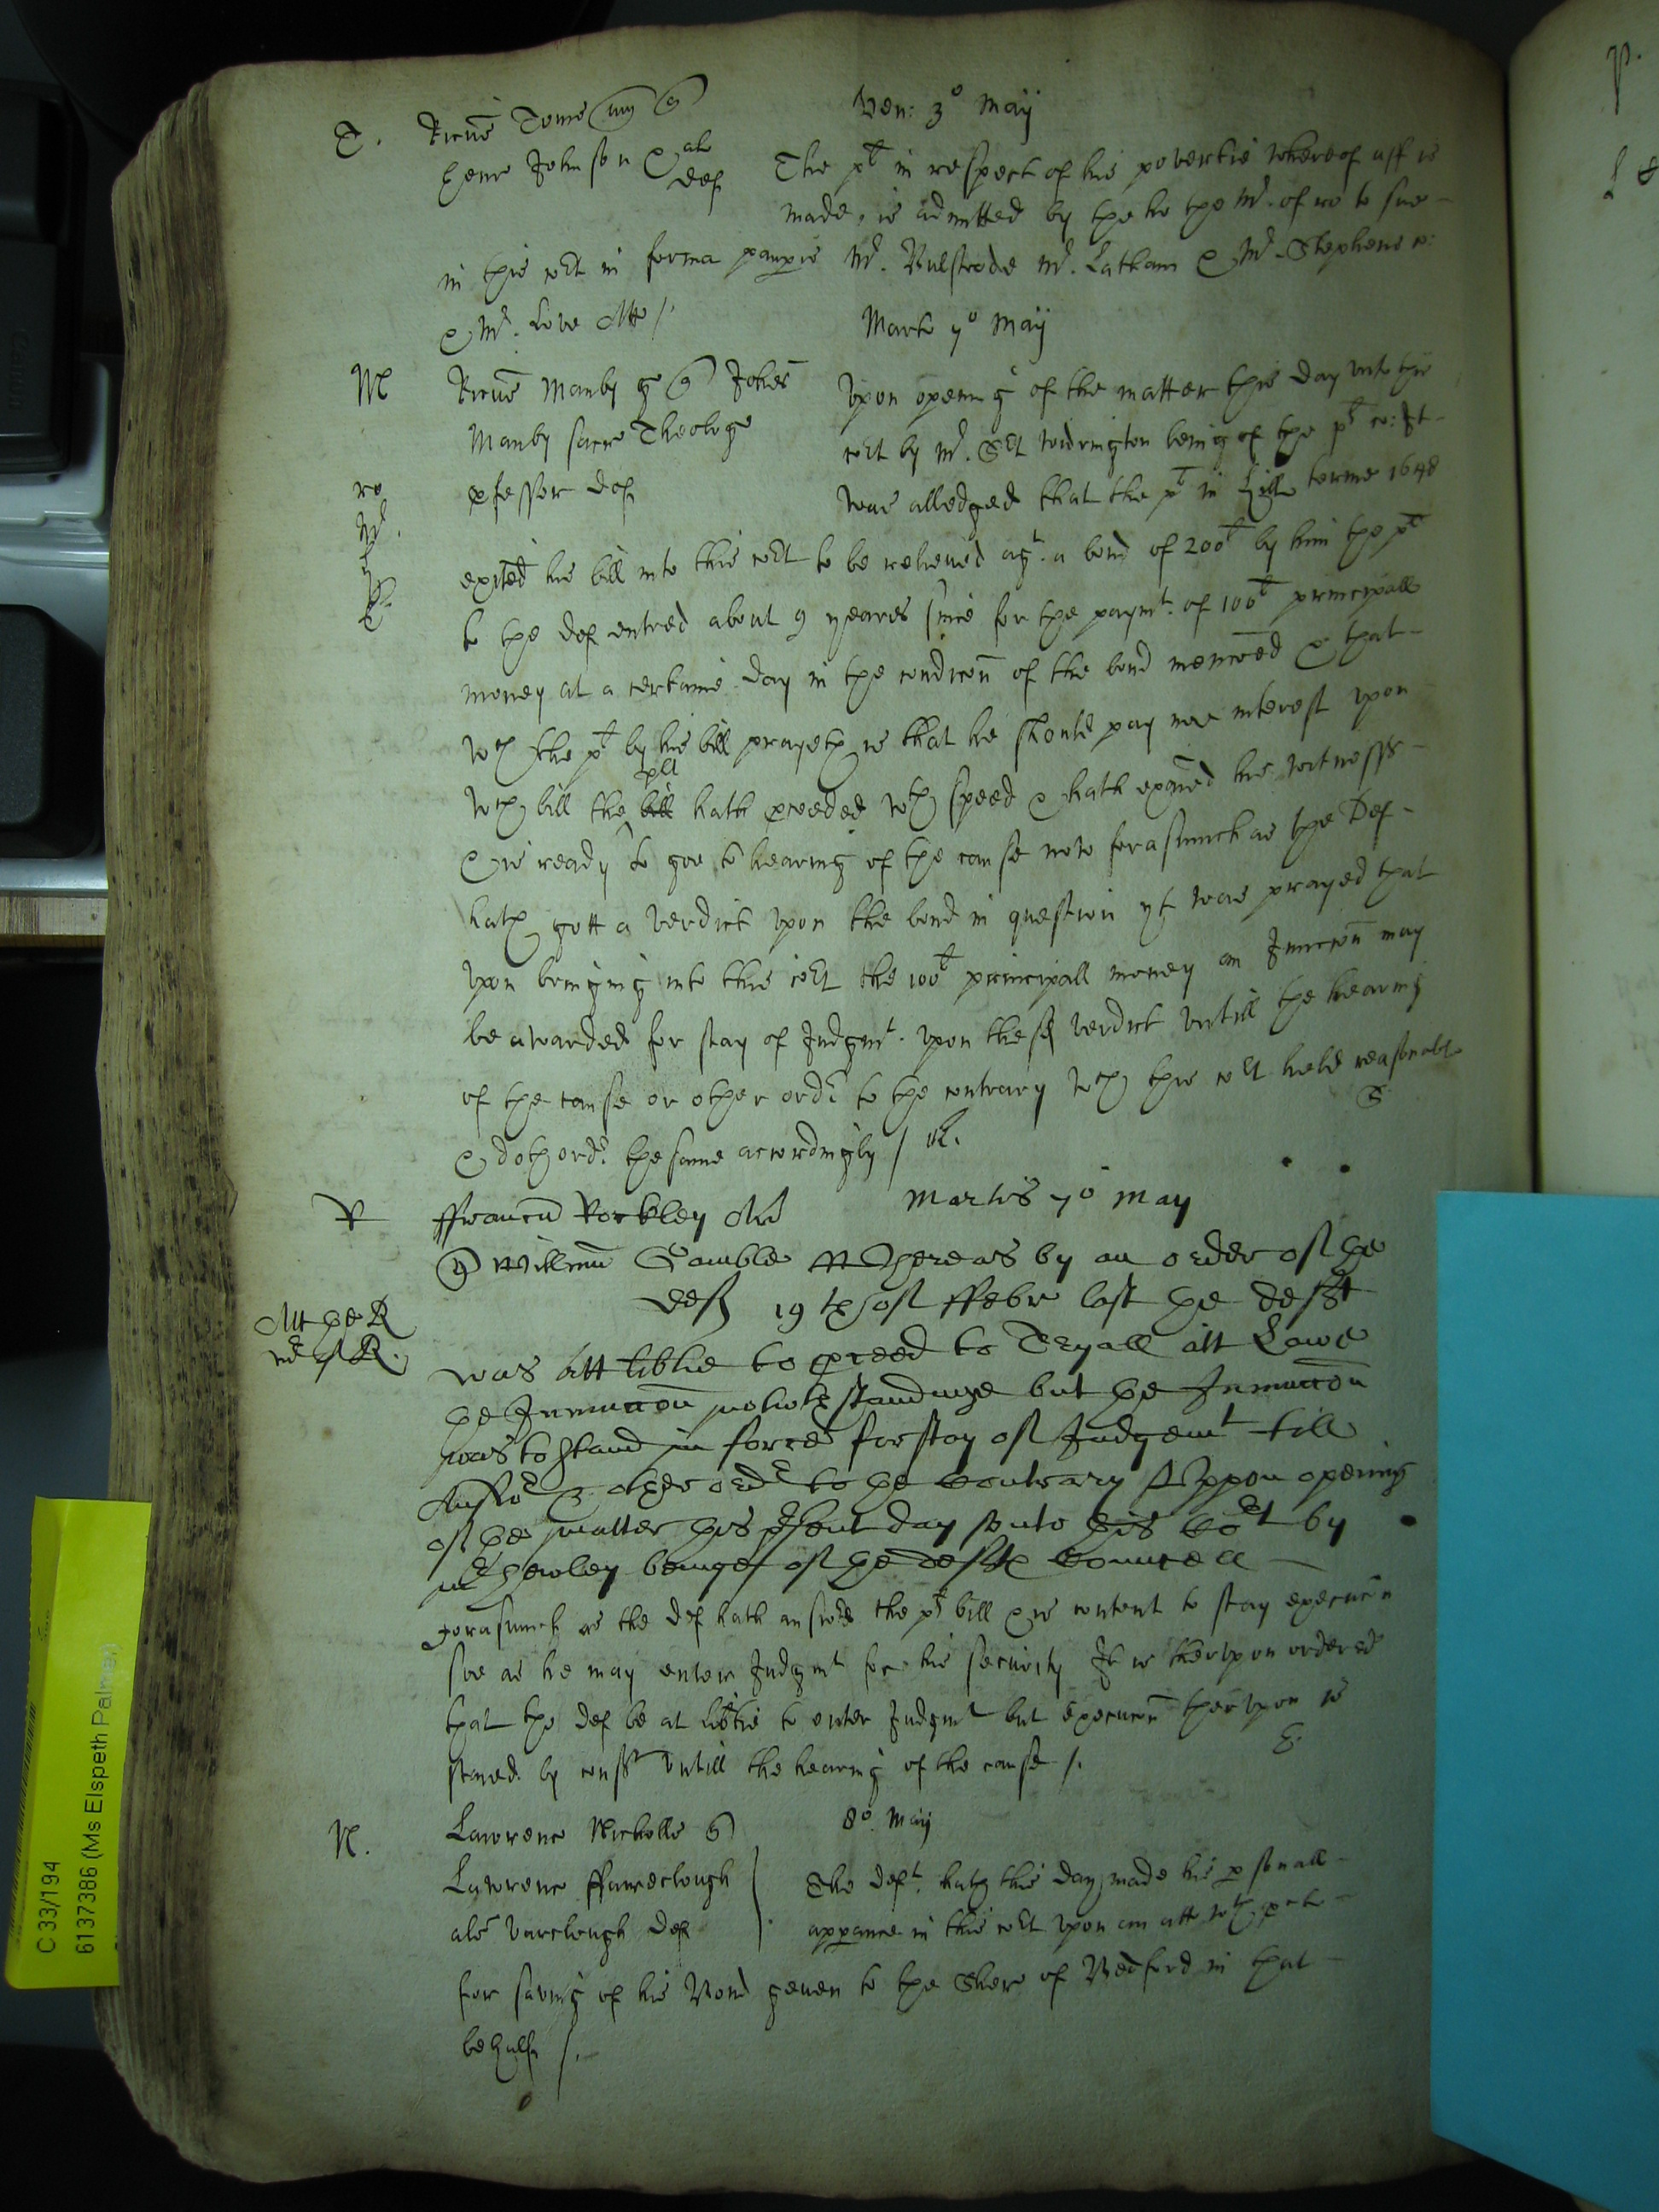 Ven: 3º Maij
T. Ricus Tome
Henr Johnson & al
def
The plt in respect of his povertie whereof aff is
made, is admitted by the ho the Mr. of ro to sue
in this cort in forma paupis Mr. Bulstrode Mr. Latham & Mr. Stephens
& Mr. Love Att /.
Marts 7º Maij
M Ricus Manby g Johes
Manby sacre Theologe
pfessor def
Upon opening of the matter this day unto this
cort by Mr. Sct Widrington being of the plts co: It
was alledged that the plt in Hill terme 1648
exited his bill into this cort to be releived agt. a bond of 200l by him the plt
to the def entred about 9 yeares since for the paymt. of 100l principall
money at a certaine day in the condicon of the bond mencoed & that
wch the plt by his bill prayeth is that he should pay noe interest upon
wch bill the bill plt hath pceeded wth speed & hath exaied his witnesses
& is ready to goe to hearing of the cause now forasmuch as the Def
hath gott a verdict upon the bond in question yt was prayed that
upon bringing into this cort the 100l principall money an Iniuccon may
be awarded for stay of Judgmt. upon the sd verdict untill the hearing
of the cause or other ordr to the contrary wch this cort held reasonable
& doth ordr. the same accordingly / R.
S
Martis 7º May
R ffranciu Rockley
Willmu Gamble
def
Whereas by an order of the
19th of ffebr last the deft
was att libtie to pceed to Tryall att Lawe
the Iniuncon notwthstandinge but the Iniuncon
was to stand in force for stay of Judgemt till
Answr & other ordr to the contrary Uppon opening
of the matter this psent day unto this Cort by
mr Hewley beinge of the defts Councell
Forasmuch as the def hath answed the plts bill & is content to stay execucn
soe as he may enter Judgmt for his security It is therupon ordered
that the def be at libtie to enter Judgmt but execucon therupon is
stayed by const untill the hearing of the cause /.
E.
8º. Maij
N. Lawrence Nicholls
Lawrence ffaireclough
als varclough def
The deft. hath this day made his psonall
apparance in this cort upon an att
for saving of his Bond geven to the Shere of Bedford in that
behalf /.
C 33/194
61373786 (Ms Elspeth Palmer)